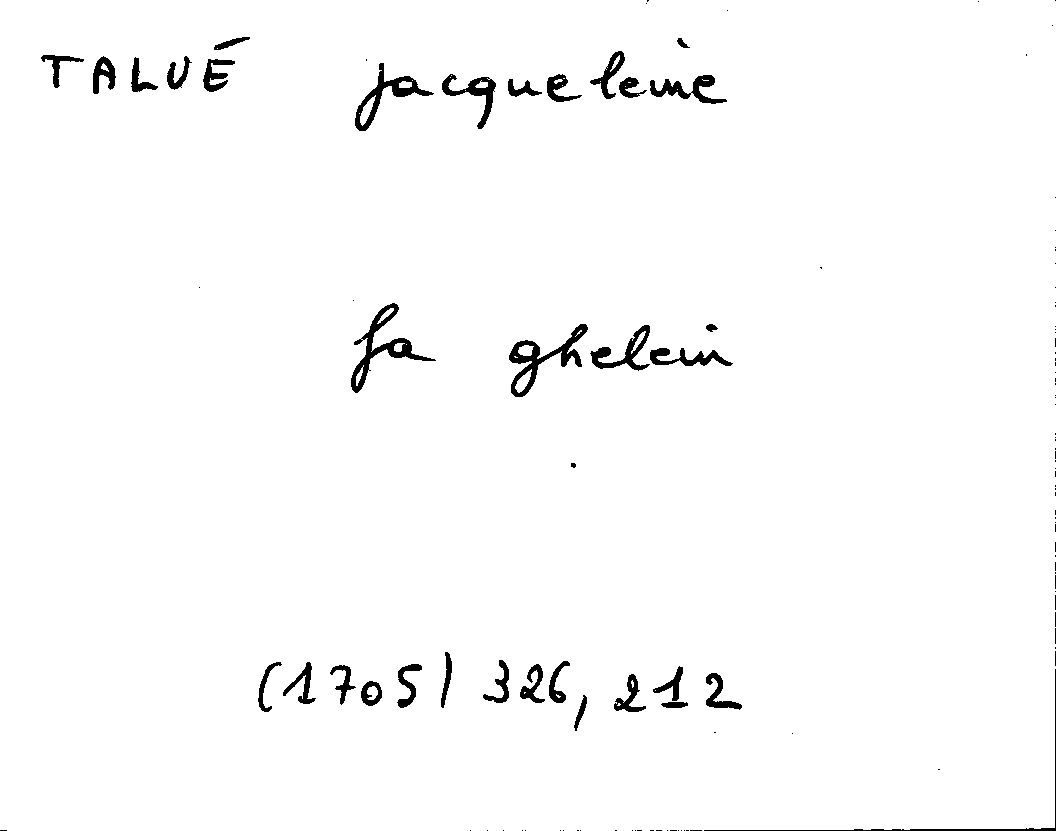 TALUÉ jacqueleine
fa ghelein
(1705) 326, 212